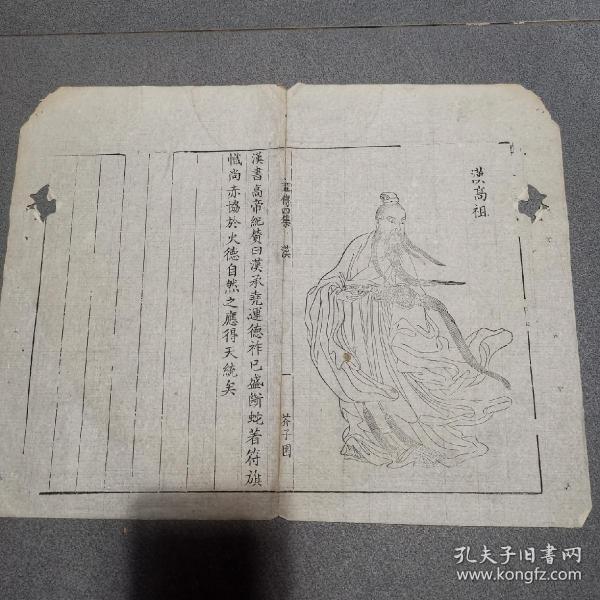 漢高祖
畫傳四集 漢 一 芥子園
漢書高帝紀贊曰漢承堯運德祚已盛斷蛇著符旗
幟尚赤協於火德自然之應得天統矣
孔夫子旧书网
www.kongfz.com